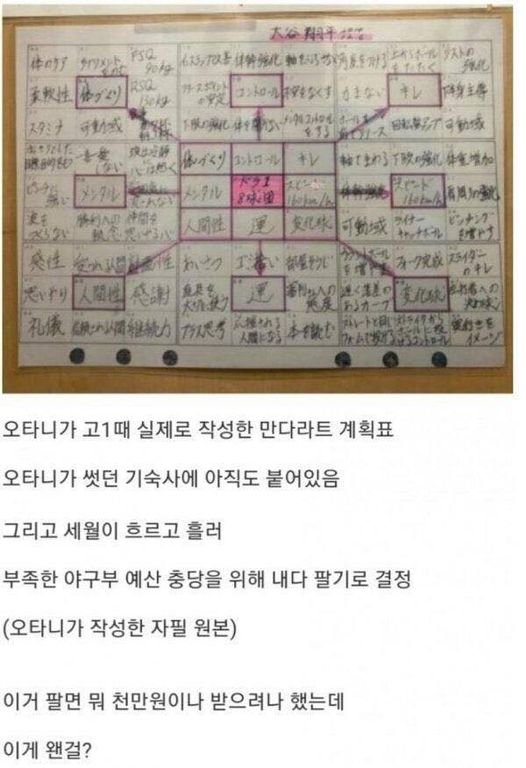 大谷翔平
体のケア サプリメントをのむ FSQ 90kg インステップ改善 体幹強化 軸をぶらさない 角度をつける 上からボールをたたく リストの強化
柔軟性 体づくり RSQ 130kg リリースポイントの安定 コントロール 不安をなくす 力まない キレ 下半身主導
スタミナ 可動域 下肢の強化 体を開かない メンタルコントロールをする ボールを前でリリース 回転数アップ 可動域
はっきりとした目標目的をもつ 一喜一憂しない 頭は冷静に心は熱く 体づくり コントロール キレ 軸でまわる 下肢の強化 体重増加
ピンチに強い メンタル メンタル ドラ1 8球団 スピード160km/h 体幹強化 スピード160km/h 肩周りの強化
波をつくらない 勝利への執念 仲間を思いやる心 人間性 運 変化球 可動域 ライナーキャッチボール ピッチングを増やす
感性 愛される人間 計画性 あいさつ ゴミ拾い 部屋そうじ カウントボールを増やす フォーク完成 スライダーのキレ
思いやり 人間性 感謝 道具を大切に使う 運 審判さんへの態度 遅く落差のあるカーブ 変化球 左打者への決め球
礼儀 信頼される人間 継続力 プラス思考 応援される人間になる 本を読む ストレートと同じフォームで投げる ストライクからボールに投げるコントロール 奥行きをイメージ
오타니가 고1때 실제로 작성한 만다라트 계획표
오타니가 썻던 기숙사에 아직도 붙어있음
그리고 세월이 흐르고 흘러
부족한 야구부 예산 충당을 위해 내다 팔기로 결정
(오타니가 작성한 자필 원본)
이거 팔면 뭐 천만원이나 받으려나 했는데
이게 왠걸?